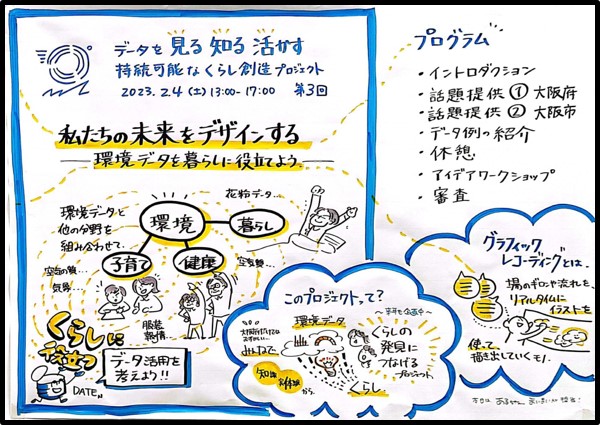 データを 見る 知る 活かす
持続可能な くらし創造 プロジェクト
2023. 2.4 (土) 13:00-17:00 第3回
私たちの未来をデザインする
環境データを暮らしに役立てよう。
花粉データ…
環境データと
他の分野を
組み合わせて、
環境
暮らし
子育て
健康
空気の質…
気象…
服装
くらしに
役立つ
データ活用を
考えよう!!
DATE
プログラム
・イントロダクション
・話題提供 ① 大阪府
・話題提供 ② 大阪市
・データ例の紹介
・休憩
・アイデアワークショップ
・審査
このプロジェクトって?
環境データ
みんなで、
知識
体験
から
くらし
くらしの
発見に
つなげる
プロジェクト
グラフィック
レコーディングとは、
場のギロンや流れを、
リアルタイムに
イラストを
使って、
描き出していくモノ.